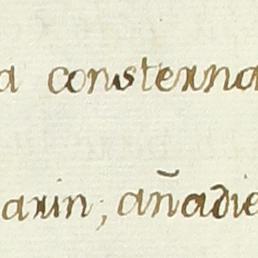 a consterna
arin; añadie